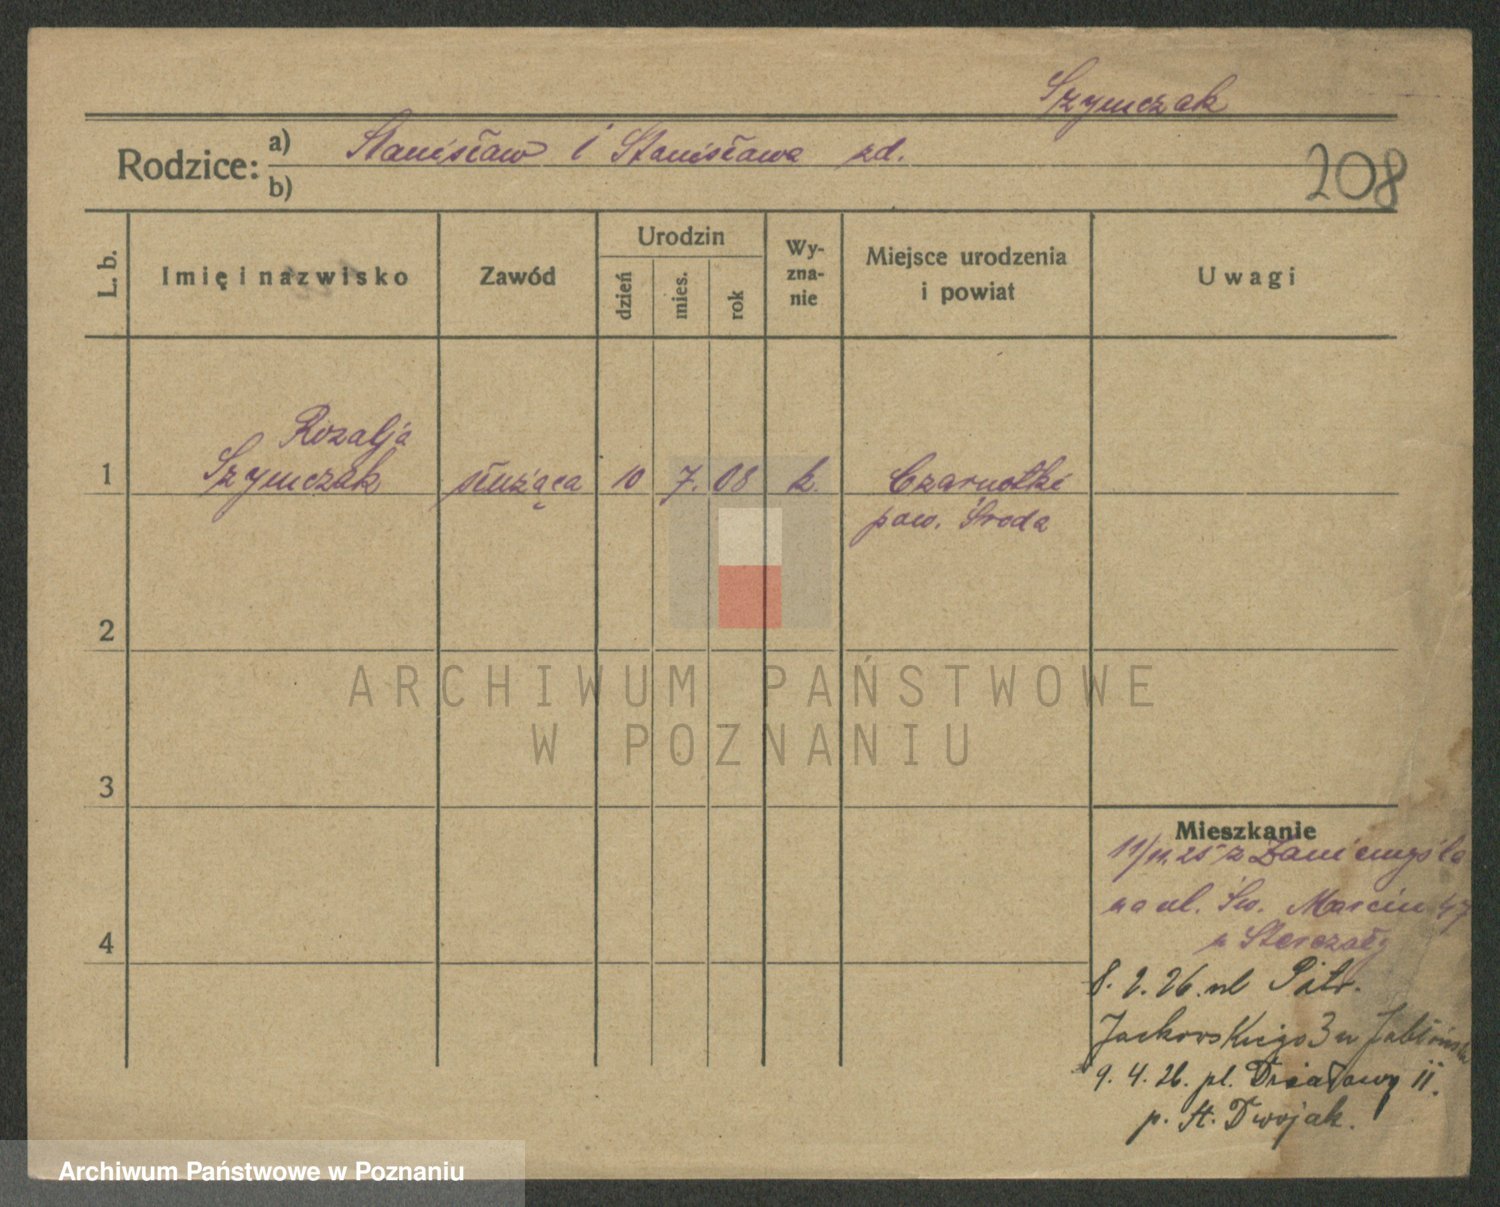 Szymczak
Rodzice: a) Stanisław i Stanisława zd.
b)
208
L. b.
Imię i nazwisko
Zawód
Urodzin
dzień
mies.
rok
Wy-
zna-
nie
Miejsce urodzenia
i powiat
Uwagi
Rozalja
1 Szymczak służąca 10 7. 08 k. Czarnotki
pow. Środa
2
3
4
Mieszkanie
11/11.25 z Zaniemyśla
na ul. Św. Marcin 47
p Sterczały
8. 2. 26. ul Piotr.
Jackowskiego 3 u
9. 4. 26. pl. Działowy II.
p. St. Dwojak.
ARCHIWUM PAŃSTWOWE
W POZNANIU
Archiwum Państwowe w Poznaniu